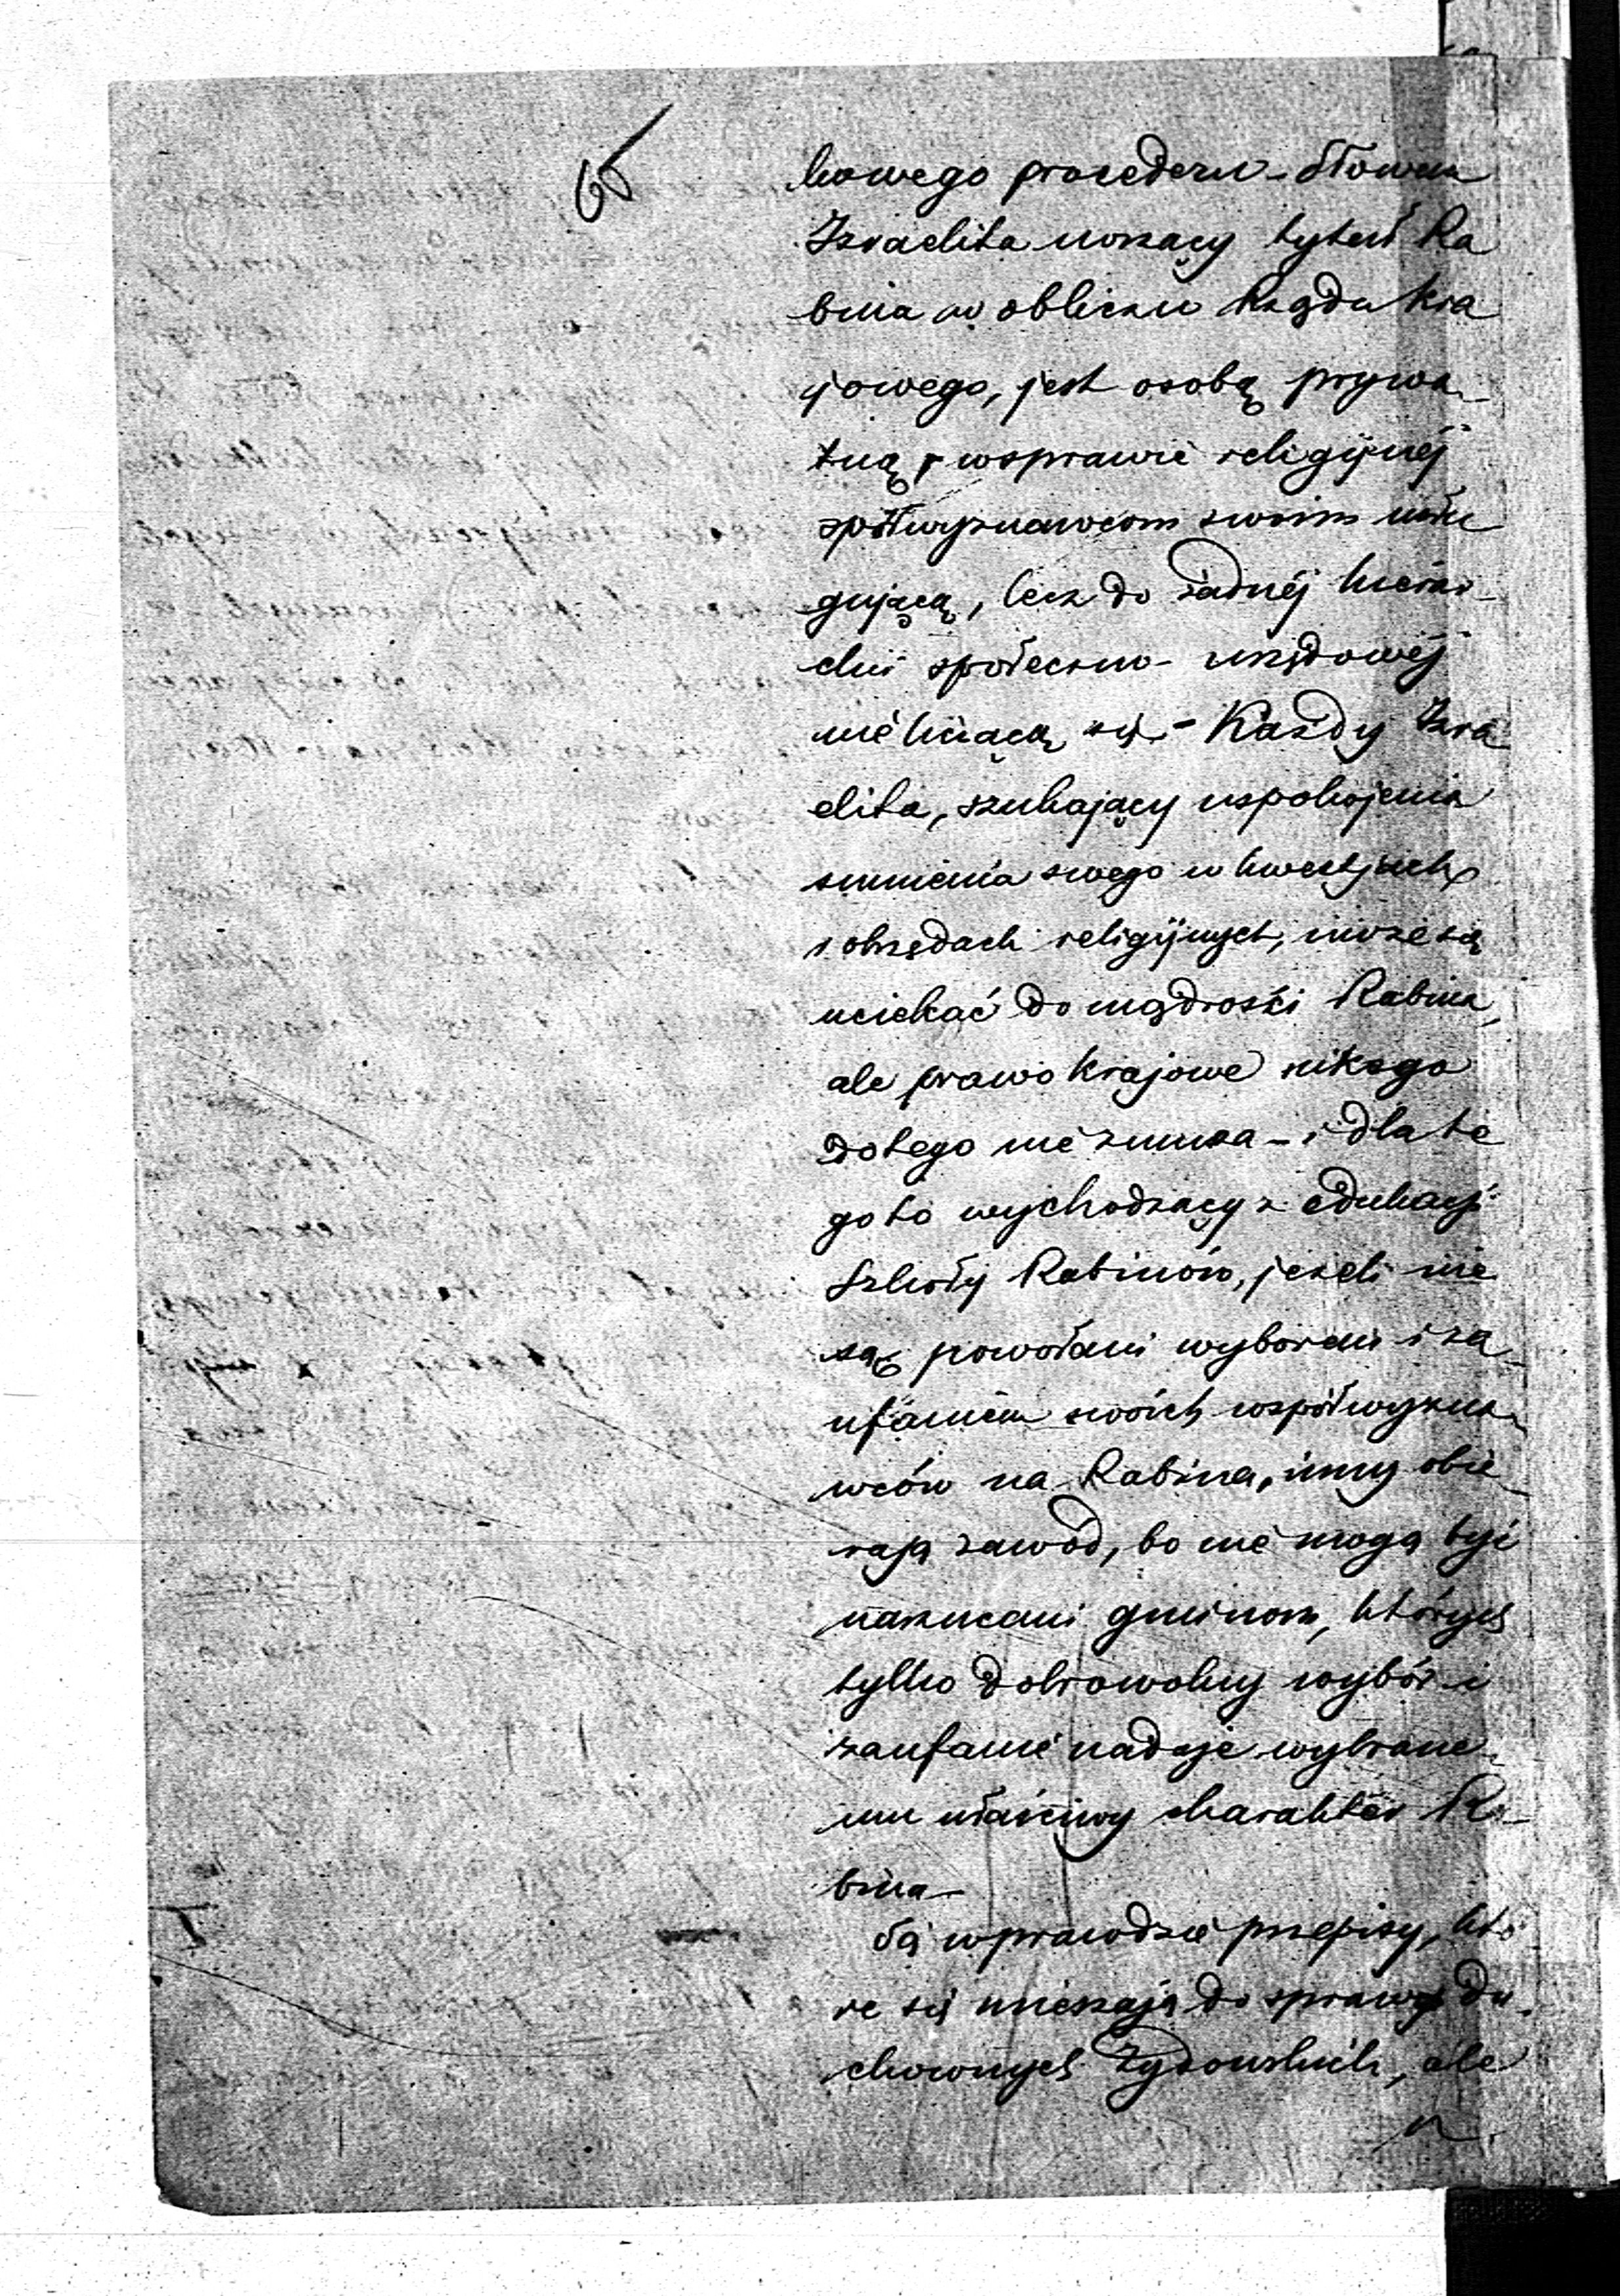 65
kowego procederu – Słowem
Izraelita noszący tytuł Ra
bina w obliczu Rządu Kra
jowego, jest osobą prywa_
tną, w sprawie religijnéj
spółwyznawcom swoim usłu
gującą, lecz do żadnéj hierar_
chii społeczno-urzędowéj
nie licżącą się – Każdy Izra
elita, szukający uspokojenia
sumienia swego w kwestjach
i obrzędach religijnych, może się
uciekać do mądrości Rabina,
ale prawo krajowe nikogo
do tego nie zmusza – i dla te
go to wychodzący z edukacji
Szkoły Rabinów, jeżeli nie
są powołani wyborem i za_
ufaniem swoich współwyzna_
wców na Rabina, inny obie_
rają zawód, bo nie mogą być
narzucani gminom, których
tylko dobrowolny wybór i
zaufanie nadaje wybrane_
mu właściwy charakter Ra_
bina –
Są wprawdzie przepisy, któ
re się mieszają do spraw du_
chownych Żydowskich, ale